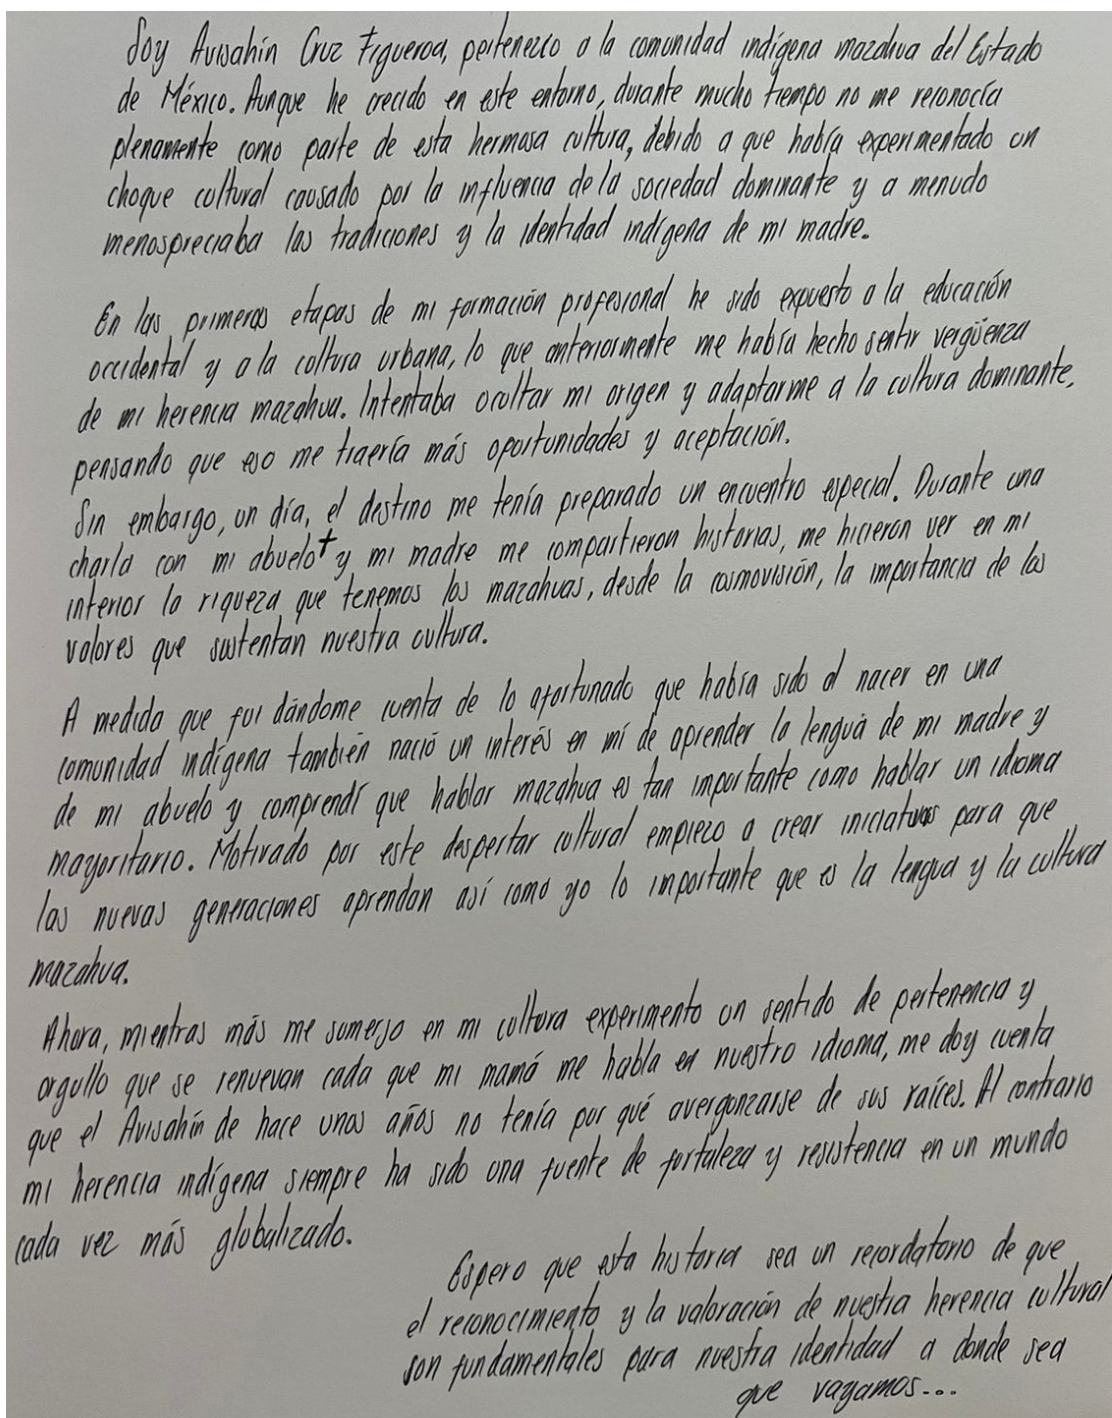 Soy Avisahín Cruz Figueroa, pertenezco a la comunidad indígena mazahua del Estado
de México. Aunque he crecido en este entorno, durante mucho tiempo no me reconocía
plenamente como parte de esta hermosa cultura, debido a que había experimentado un
choque cultural causado por la influencia de la sociedad dominante y a menudo
menospreciaba las tradiciones y la identidad indígena de mi madre.
En las primeras etapas de mi formación profesional he sido expuesto a la educación
occidental y a la cultura urbana, lo que anteriormente me había hecho sentir vergüenza
de mi herencia mazahua. Intentaba ocultar mi origen y adaptarme a la cultura dominante,
pensando que eso me traería más oportunidades y aceptación.
Sin embargo, un día, el destino me tenía preparado un encuentro especial. Durante una
charla con mi abuelo† y mi madre me compartieron historias, me hicieron ver en mi
interior la riqueza que tenemos los mazahuas, desde la cosmovisión, la importancia de los
valores que sustentan nuestra cultura.
A medida que fui dándome cuenta de lo afortunado que había sido al nacer en una
comunidad indígena también nació un interés en mí de aprender la lengua de mi madre y
de mi abuelo y comprendí que hablar mazahua es tan importante como hablar un idioma
mayoritario. Motivado por este despertar cultural empiezo a crear iniciativas para que
las nuevas generaciones aprendan así como yo lo importante que es la lengua y la cultura
mazahua.
Ahora, mientras más me sumerjo en mi cultura experimento un sentido de pertenencia y
orgullo que se renuevan cada que mi mamá me habla en nuestro idioma, me doy cuenta
que el Avisahín de hace unos años no tenía por qué avergonzarse de sus raíces. Al contrario
mi herencia indígena siempre ha sido una fuente de fortaleza y resistencia en un mundo
cada vez más globalizado.
Espero que esta historia sea un recordatorio de que
el reconocimiento y la valoración de nuestra herencia cultural
son fundamentales para nuestra identidad a donde sea
que vayamos...